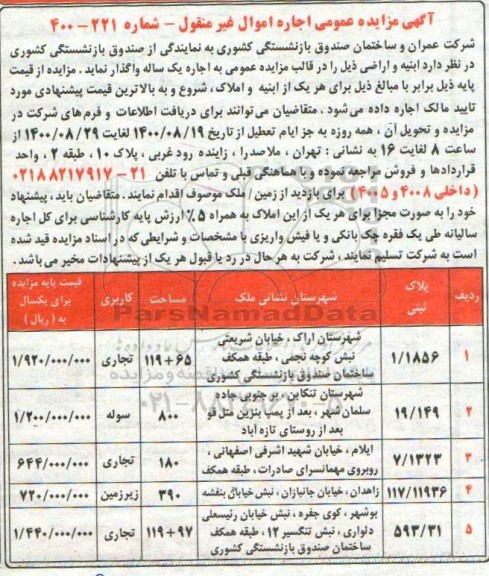 آگهی مزایده عمومی اجاره اموال غیر منقول - شماره ۲۲۱ - ۴۰۰
شرکت عمران و ساختمان صندوق بازنشستگی کشوری به نمایندگی از صندوق بازنشستگی کشوری
در نظر دارد ابنیه و اراضی ذیل را در قالب مزایده عمومی به اجاره یک ساله واگذار نماید . مزایده از قیمت
پایه ذیل برابر با مبالغ ذیل برای هر یک از ابنیه و املاک ، شروع و به بالاترین قیمت پیشنهادی مورد
تایید مالک اجاره داده می‌شود ، متقاضیان می‌توانند برای دریافت اطلاعات و فرم‌های شرکت در
مزایده و تحویل آن ، همه روزه به جز ایام تعطیل از تاریخ ۱۴۰۰/۰۸/۱۹ لغایت ۱۴۰۰/۰۸/۲۹ از
ساعت ۸ لغایت ۱۶ به نشانی : تهران ، ملاصدرا ، زاینده رود غربی ، پلاک ۱۰ ، طبقه ۲ ، واحد
قراردادها و فروش مراجعه نموده و با هماهنگی قبلی و تماس با تلفن ۲۱ - ۰۲۱۸۸۲۱۷۹۱۷
( داخلی ۴۰۰۸ و ۴۰۰۵ ) برای بازدید از زمین / ملک موصوف اقدام نمایند . متقاضیان باید ، پیشنهاد
خود را به صورت مجزا برای هر یک از این املاک به همراه ۵٪ ارزش پایه کارشناسی برای کل اجاره
سالیانه طی یک فقره چک بانکی و یا فیش واریزی با مشخصات و شرایطی که در اسناد مزایده قید شده
است به شرکت تسلیم نمایند ، شرکت به هر حال در رد یا قبول هر یک از پیشنهادات مخیر می‌باشد .
ردیف پلاک ثبتی شهرستان نشانی ملک مساحت کاربری قیمت پایه مزایده برای یکسال به ( ریال )
ParsNamadData
شهرستان اراک ، خیابان شریعتی
۱ ۱/۱۸۵۶ نبش کوچه نجمی ، طبقه همکف ۱۱۹+۶۵ تجاری ۱/۹۲۰/۰۰۰/۰۰۰
ساختمان صندوق بازنشستگی کشوری
شهرستان تنکابن ، بر جنوبی جاده
۲ ۱۹/۱۴۹ سلمان شهر ، بعد از پمپ بنزین متل قو ۸۰۰ سوله ۱/۲۰۰/۰۰۰/۰۰۰
بعد از روستای تازه آباد
۳ ۷/۱۳۲۳ ایلام ، خیابان شهید اشرفی اصفهانی ، ۱۸۰ تجاری ۶۴۴/۰۰۰/۰۰۰
روبروی مهمانسرای صادرات ، طبقه همکف
۴ ۱۱۷/۱۱۹۳۶ زاهدان ، خیابان جانبازان ، نبش خیابان بنفشه ۳۹۰ زیرزمین ۷۲۰/۰۰۰/۰۰۰
بوشهر ، کوی جفره ، نبش خیابان رئیسعلی
۵ ۵۹۳/۳۱ دلواری ، نبش تنگسیر ۱۲ ، طبقه همکف ۱۱۹+۹۷ تجاری ۱/۴۴۰/۰۰۰/۰۰۰
ساختمان صندوق بازنشستگی کشوری